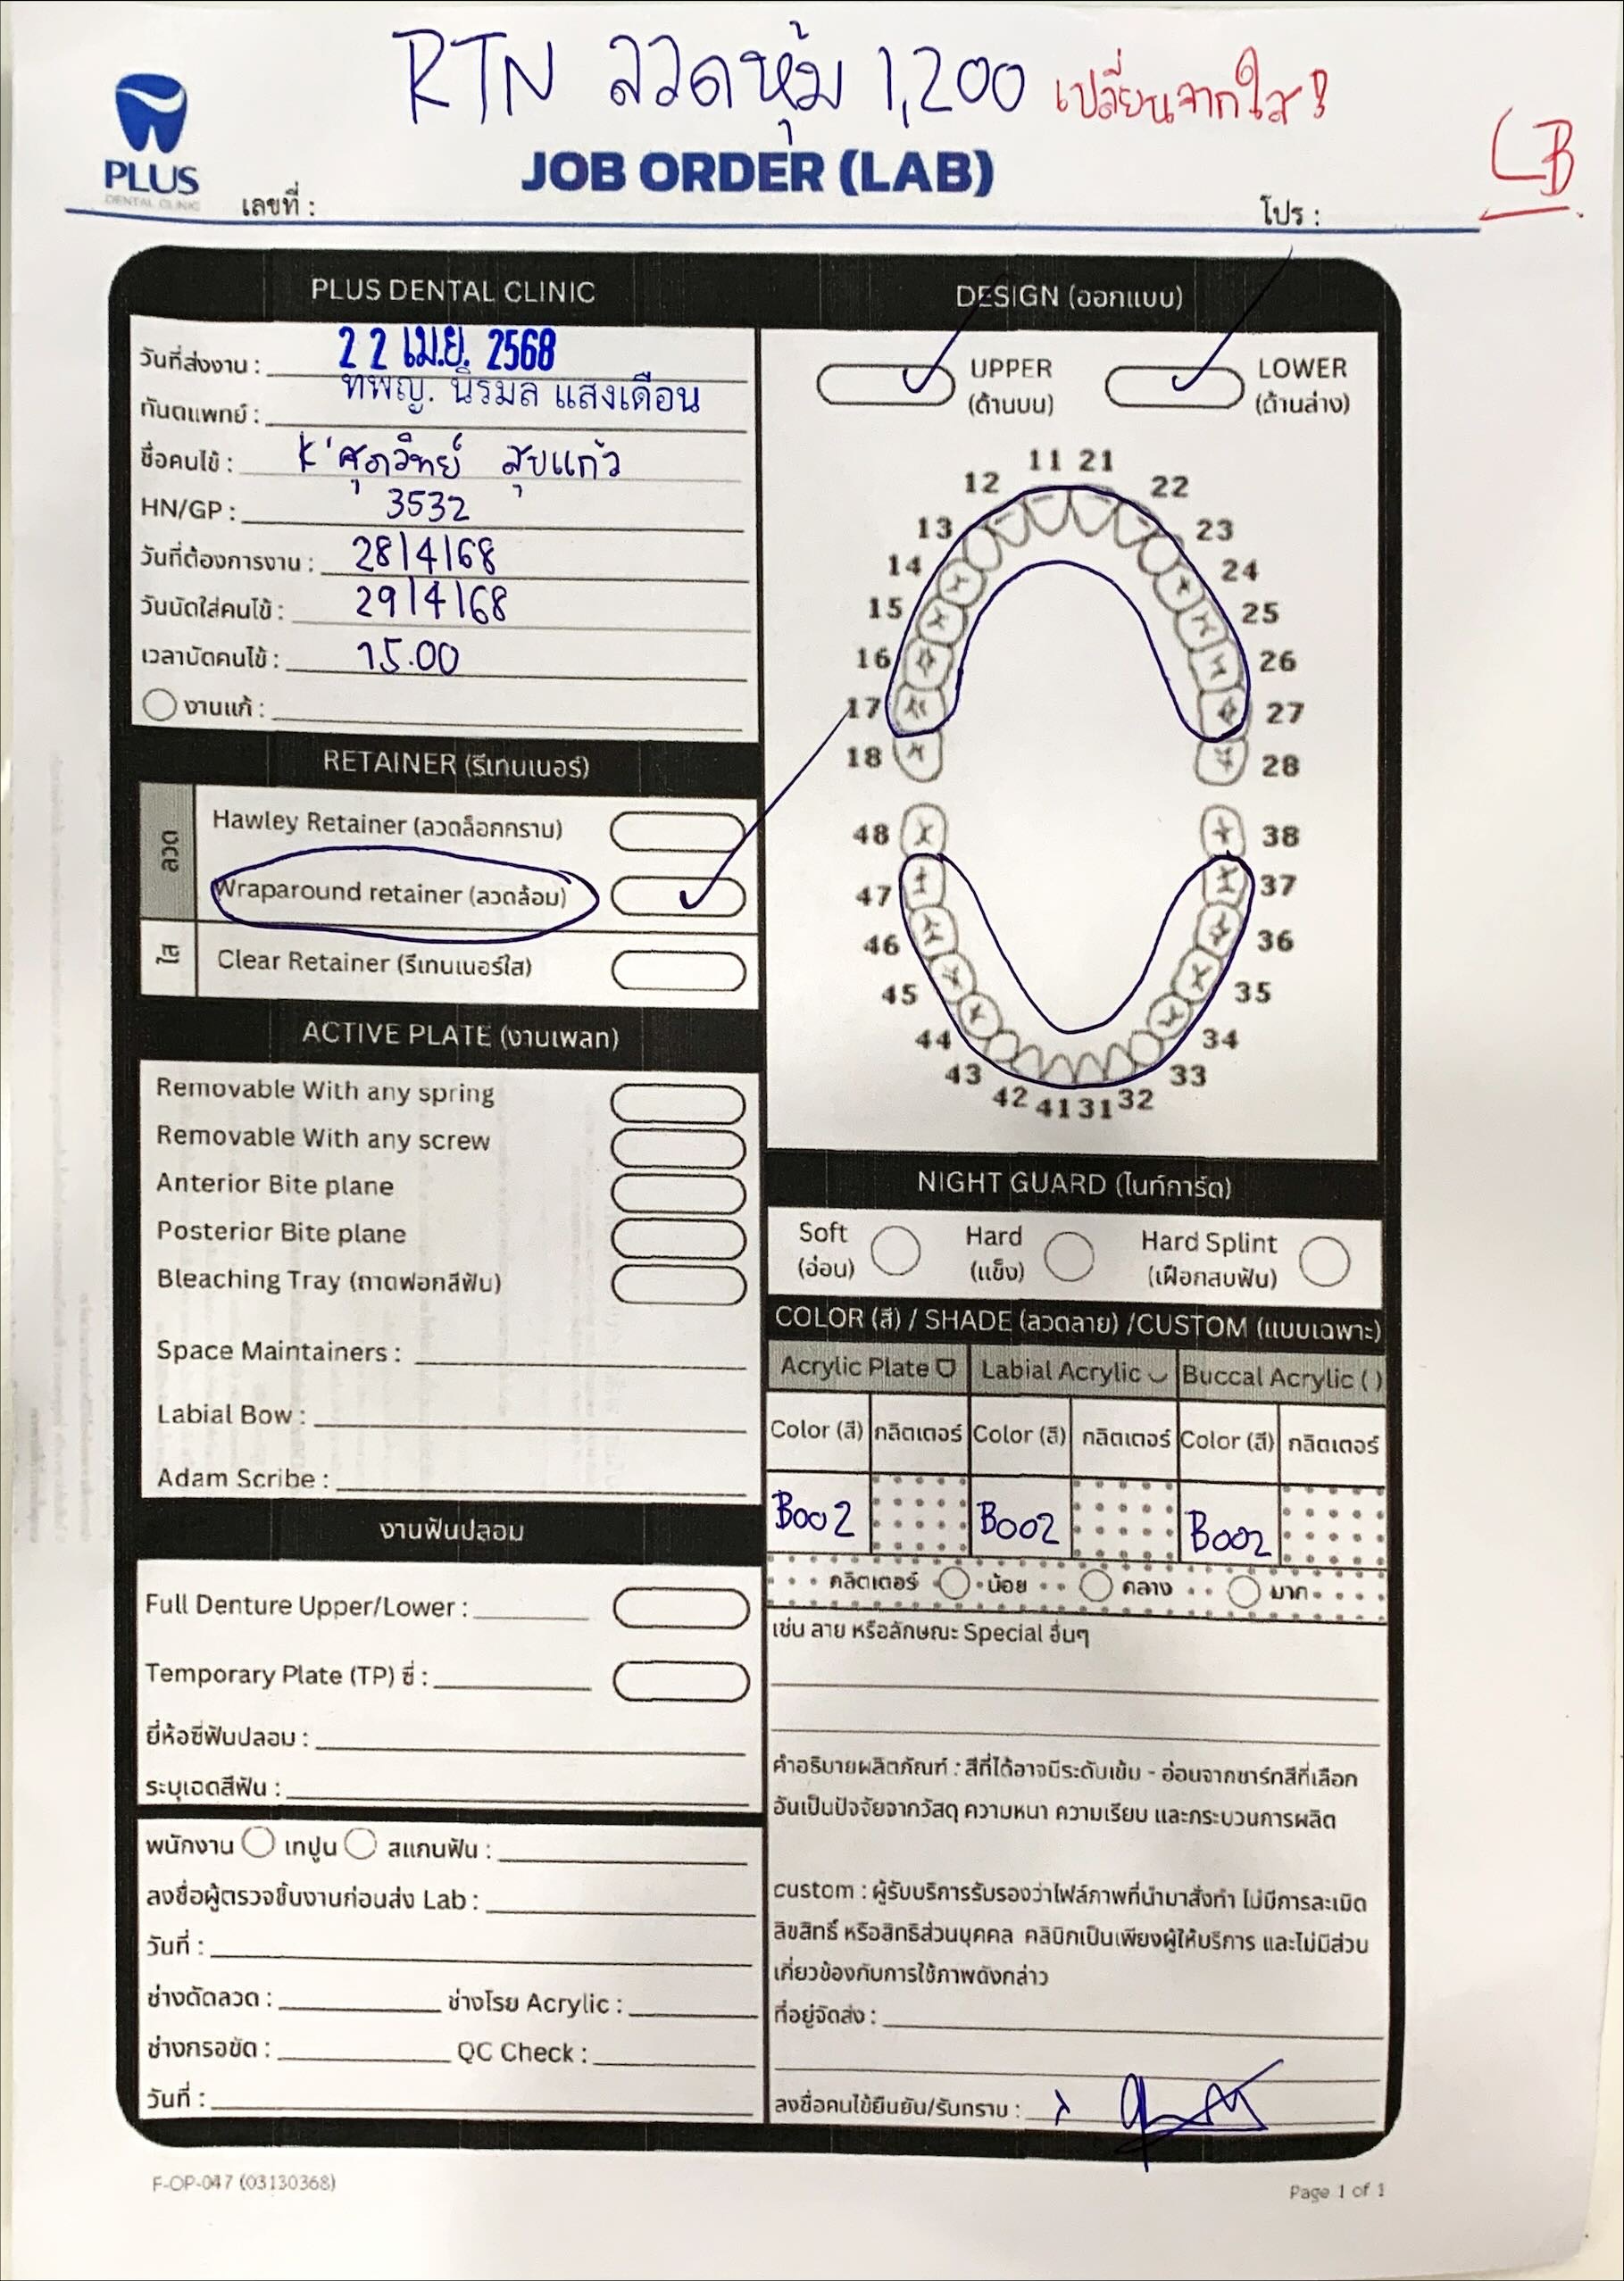 RTN ลวดหุ้ม 1,200 เปลี่ยนจากใส!
LB
PLUS
DENTAL CLINIC
JOB ORDER (LAB)
เลขที่ :
โปร :
PLUS DENTAL CLINIC
วันที่ส่งงาน : 22 เม.ย. 2568
ทันตแพทย์ : ทพญ. นิรมล แสงเดือน
ชื่อคนไข้ : K' ศุภวิทย์ สุขแก้ว
HN/GP : 3532
วันที่ต้องการงาน : 28/4/68
วันนัดใส่คนไข้ : 29/4/68
เวลานัดคนไข้ : 15.00
งานแก้ :
RETAINER (รีเทนเนอร์)
ลวด
Hawley Retainer (ลวดล็อกกราม)
Wraparound retainer (ลวดล้อม)
ใส
Clear Retainer (รีเทนเนอร์ใส)
ACTIVE PLATE (งานเพลท)
Removable With any spring
Removable With any screw
Anterior Bite plane
Posterior Bite plane
Bleaching Tray (ถาดฟอกสีฟัน)
Space Maintainers :
Labial Bow :
Adam Scribe :
งานฟันปลอม
Full Denture Upper/Lower :
Temporary Plate (TP) ซี่ :
ยี่ห้อซี่ฟันปลอม :
ระบุเฉดสีฟัน :
พนักงาน เทปูน สแกนฟัน :
ลงชื่อผู้ตรวจชิ้นงานก่อนส่ง Lab :
วันที่ :
ช่างดัดลวด : ช่างโรย Acrylic :
ช่างกรอขัด : QC Check :
วันที่ :
DESIGN (ออกแบบ)
UPPER
(ด้านบน)
LOWER
(ด้านล่าง)
11 21
12 22
13 23
14 24
15 25
16 26
17 27
18 28
48 38
47 37
46 36
45 35
44 34
43 33
42 41 31 32
NIGHT GUARD (ไนท์การ์ด)
Soft
(อ่อน)
Hard
(แข็ง)
Hard Splint
(เฝือกสบฟัน)
COLOR (สี) / SHADE (ลวดลาย) /CUSTOM (แบบเฉพาะ)
Acrylic Plate Labial Acrylic Buccal Acrylic ( )
Color (สี) กลิตเตอร์ Color (สี) กลิตเตอร์ Color (สี) กลิตเตอร์
B002 B002 B002
กลิตเตอร์ น้อย กลาง มาก
เช่น ลาย หรือลักษณะ Special อื่นๆ
คำอธิบายผลิตภัณฑ์ : สีที่ได้อาจมีระดับเข้ม - อ่อนจากชาร์ทสีที่เลือก
อันเป็นปัจจัยจากวัสดุ ความหนา ความเรียบ และกระบวนการผลิต
custom : ผู้รับบริการรับรองว่าไฟล์ภาพที่นำมาสั่งทำ ไม่มีการละเมิด
ลิขสิทธิ์ หรือสิทธิส่วนบุคคล คลินิกเป็นเพียงผู้ให้บริการ และไม่มีส่วน
เกี่ยวข้องกับการใช้ภาพดังกล่าว
ที่อยู่จัดส่ง :
ลงชื่อคนไข้ยืนยัน/รับทราบ :
F-OP-047 (03130368)
Page 1 of 1